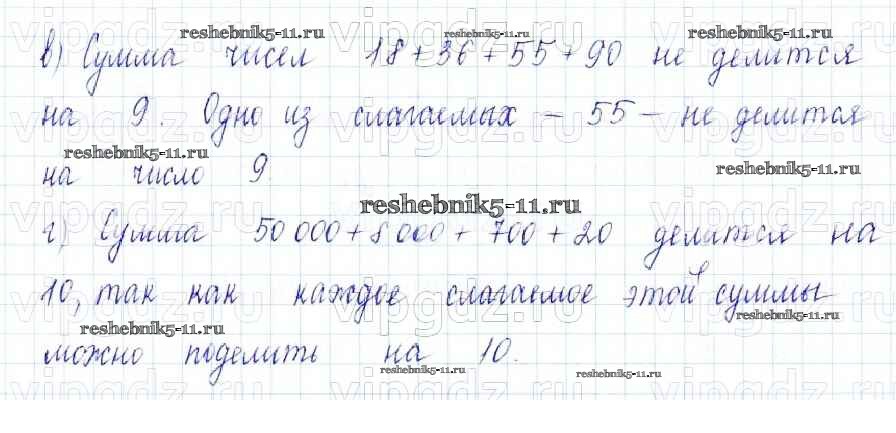 в) Сумма чисел 18 + 36 + 55 + 90 не делится
на 9. Одно из слагаемых – 55 – не делится
на число 9.
г) Сумма 50 000 + 8 000 + 700 + 20 делится на
10, так как каждое слагаемое этой суммы
можно поделить на 10.
reshebnik5-11.ru
reshebnik5-11.ru
reshebnik5-11.ru
reshebnik5-11.ru
reshebnik5-11.ru
reshebnik5-11.ru
reshebnik5-11.ru
reshebnik5-11.ru
reshebnik5-11.ru
vipgdz.ru